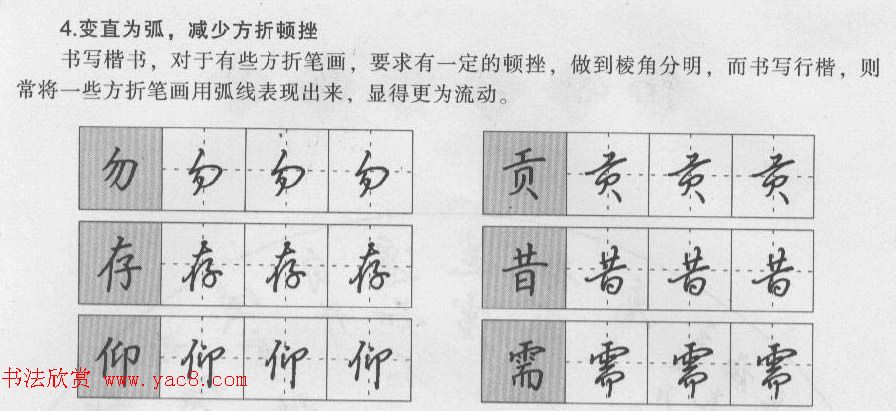 4.变直为弧，减少方折顿挫
书写楷书，对于有些方折笔画，要求有一定的顿挫，做到棱角分明，而书写行楷，则
常将一些方折笔画用弧线表现出来，显得更为流动。
勿 勿 勿 勿 贡 贡 贡 贡
存 存 存 存 昔 昔 昔 昔
仰 仰 仰 仰 需 需 需 需
书法欣赏 www.yac8.com